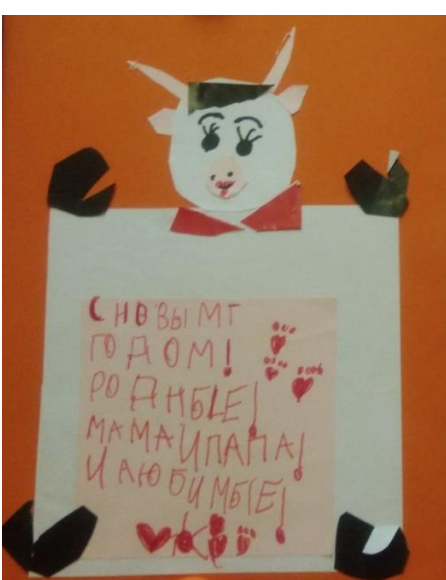 СНОВЫМГ
ГОДОМ!
РОДНЫЕ!
МАМА И ПАПА!
И ЛЮБИМЫЕ!